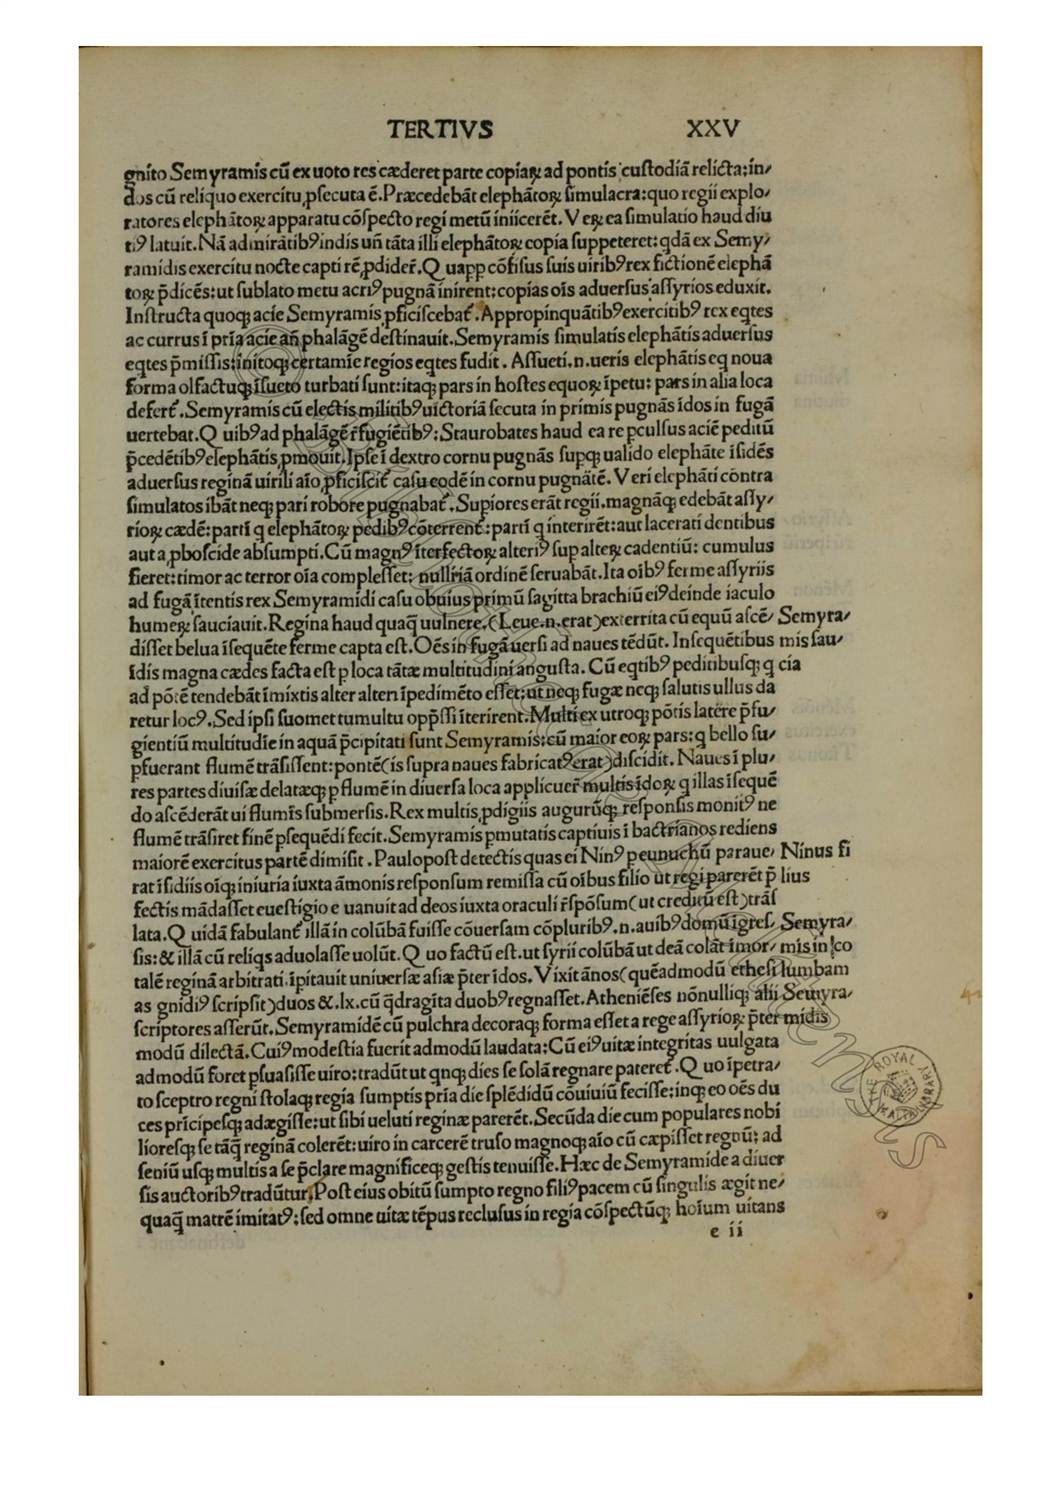 TERTIVS XXV
gnito Semyramis cū ex uoto res cæderet parte copiaꝝ ad pontis custodiā relicta: in/
dos cū reliquo exercitu ꝓsecuta ē. Præcedebāt elephātoꝝ simulacra: quo regii explo/
ratores elephātoꝝ apparatu cōspecto regi metū iniicerēt. Veꝝ ea simulatio haud diu
tiꝰ latuit. Nā admirātibꝰ indis uñ tāta illi elephātoꝝ copia suppeteret: qdā ex Semy/
ramidis exercitu nocte capti rē ꝓdider̄. Quapp cōfisus suis uiribꝰ rex fictionē elephā
toꝝ p̄dicēs: ut sublato metu acriꝰ pugnā inirent: copias oīs aduersus assyrios eduxit.
Instructa quoqꝫ acie Semyramis ꝓficiscebat̄. Appropinquātibꝰ exercitibꝰ rex eqtes
ac currus ī pria acie añ phalāgē destinauit. Semyramis simulatis elephātis aduersus
eqtes p̄missis: initoqꝫ certamie regios eqtes fudit. Assueti .n. ueris elephātis eq noua
forma olfactuqꝫ īsueto turbati sunt: itaqꝫ pars in hostes equoꝝ īpetu: pars in alia loca
defert̄. Semyramis cū electis militibꝰ uictoriā secuta in primis pugnās īdos in fugā
uertebat. Quibꝰ ad phalāgē r̄fugiētibꝰ: Staurobates haud ea re ꝑculsus aciē peditū
p̄cedētibꝰ elephātis ꝓmouit. Ipse ī dextro cornu pugnās supqꝫ ualido elephāte īsidēs
aduersus reginā uirili aīo ꝓficiscit̄ casu eodē in cornu pugnātē. Veri elephāti contra
simulatos ibāt neqꝫ pari robore pugnabat̄. Supiores erāt regii. magnāqꝫ edebāt assy/
rioꝝ cædē: parti q elephātoꝝ pedibꝰ cōterrent̄: parti q interirēt: aut lacerati dentibus
aut a ꝓboscide absumpti. Cū magnꝰ īterfectoꝝ alteriꝰ sup alteꝝ cadentiū: cumulus
fieret: timor ac terror oīa complesset: nullr̄iā ordinē seruabāt. Ita oībꝰ ferme assyriis
ad fugā ītentis rex Semyramidi casu obuius primū sagitta brachiū eiꝰ deinde iaculo
humeꝝ sauciauit. Regina haud quaq̄ uulnere. (Leue .n. erat) exterrita cū equū ascē/ Semyra/
disset belua īsequēte ferme capta est. Oēs in fugā uersi ad naues tēdūt. Insequētibus mis sau/
īdis magna cædes facta est ꝑ loca tātæ multitudini angusta. Cū eqtibꝰ peditibusqꝫ q cia
ad pōtē tendebāt īmixtis alter alteri īpedimēto esset: ut neqꝫ fugæ neqꝫ salutis ullus da
retur locꝰ. Sed ipsi suomet tumultu opp̄ssi īterirent. Multi ex utroqꝫ pōtis latere p̄fu/
gientiū multitudīe in aquā p̄cipitati sunt Semyramis: cū maior eoꝝ pars: q bello su/
ꝑfuerant flumē trāsissent: pontē (is supra naues fabricatꝰ erat) discidit. Naues ī plu/
res partes diuisæ delatæqꝫ ꝑ flumē in diuersa loca applicuer̄ multis īdoꝝ q illas īsequē
do ascēderāt ui flumīs submersis. Rex multis ꝓdigiis augurūqꝫ responsis monitꝰ ne
flumē trāsiret finē ꝑsequēdi fecit. Semyramis ꝑmutatis captiuis ī bactrianos rediens
maiorē exercitus partē dimisit. Paulopost detectis quas ei Ninꝰ ꝑ eunuchū paraue/ Ninus fi
rat īsidiis oīqꝫ iniuria iuxta āmonis responsum remissa cū oībus filio ut regi parerēt p̄ lius
fectis mādasset euestigio euanuit ad deos iuxta oraculi r̄spōsum (ut creditū est) trās
lata. Quidā fabulant̄ illā in colūbā fuisse cōuersam cōpluribꝰ .n. auibꝰ domū īgres/ Semyra/
sis: & illā cū reliqs aduolasse uolūt. Quo factū est. ut syrii colūbā ut deā colāt īmor/ mis in co
talē reginā arbitrati. īpitauit uniuersæ asiæ p̄ter īdos. Vixit ānos (quēadmodū ethesi lumbam
as gnidiꝰ scripsit) duos &. lx. cū q̄dragīta duobꝰ regnasset. Atheniēses nōnulliqꝫ alii Semyra/
scriptores asserūt. Semyramidē cū pulchra decoraqꝫ forma esset a rege assyrioꝝ p̄ter midis
modū dilectā. Cuiꝰ modestia fuerit admodū laudata: Cū eiꝰ uitæ integritas uulgata
admodū foret ꝑsuasisse uiro: tradūt ut qnqꝫ dies se solā regnare pateret̄. Quo īpetra/
to sceptro regni stolaqꝫ regia sumptis pria die splēdidū cōuiuiū fecisse: inqꝫ eo oēs du
ces prīcipesqꝫ adægisse: ut sibi ueluti reginæ parerēt. Secūda die cum populares nobi
lioresqꝫ se tāq̄ reginā colerēt: uiro in carcerē truso magnoqꝫ aīo cū cæpisset regnū: ad
seniū usqꝫ multis a se p̄clare magnificeqꝫ gestis tenuisse. Hæc de Semyramide a diuer
sis auctoribꝰ tradūtur. Post eius obitū sumpto regno filiꝰ pacem cū singulis ægit ne/
quaq̄ matrē imitatꝰ: sed omne uitæ tēpus reclusus in regia cōspectūqꝫ hoīum uitans
e ii